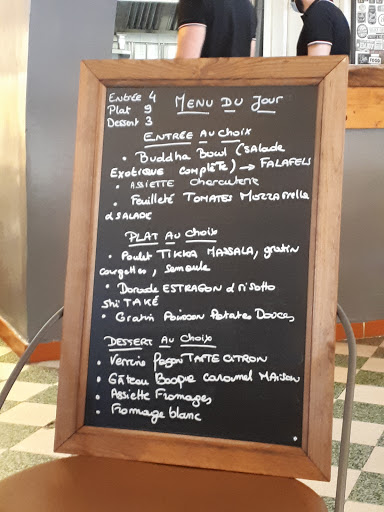 Entrée 4
Plat 9
Dessert 3
MENU DU JOUR
ENTRÉE AU CHOIX
• Buddha Bowl (salade
Exotique complète) → FALAFELS
• ASSIETTE Charcuterie
• Feuilleté TOMATES MOZZARELLA
& SALADE
PLAT AU CHOIX
• Poulet TIKKA MASSALA, gratin
courgettes, semoule
• Dorade ESTRAGON & risotto
shiTAKÉ
• Gratin Poisson Patates Douces,
DESSERT AU CHOIX
• Verrine façon TARTE CITRON
• Gâteau Basque caramel MAISON
• Assiette Fromages
• Fromage blanc